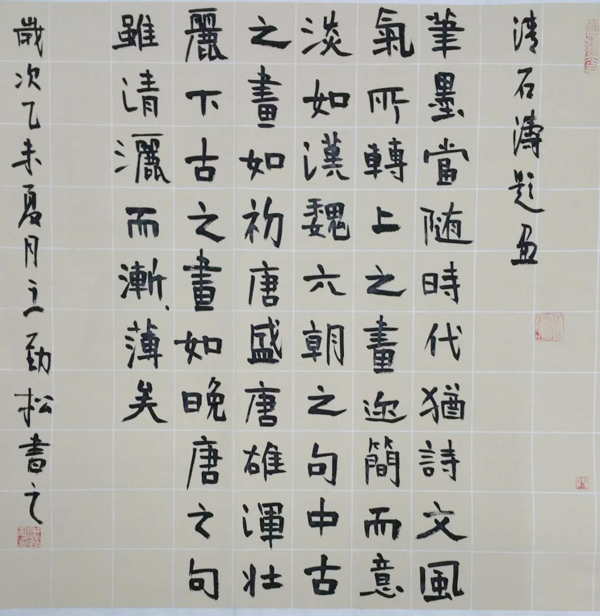 清石濤題画
筆墨當随時代猶詩文風
氣所轉上之畫迹簡而意
淡如漢魏六朝之句中古
之畫如初唐盛唐雄渾壯
麗下古之畫如晚唐之句
雖清灑而漸薄矣
歲次乙未夏月勁松書之